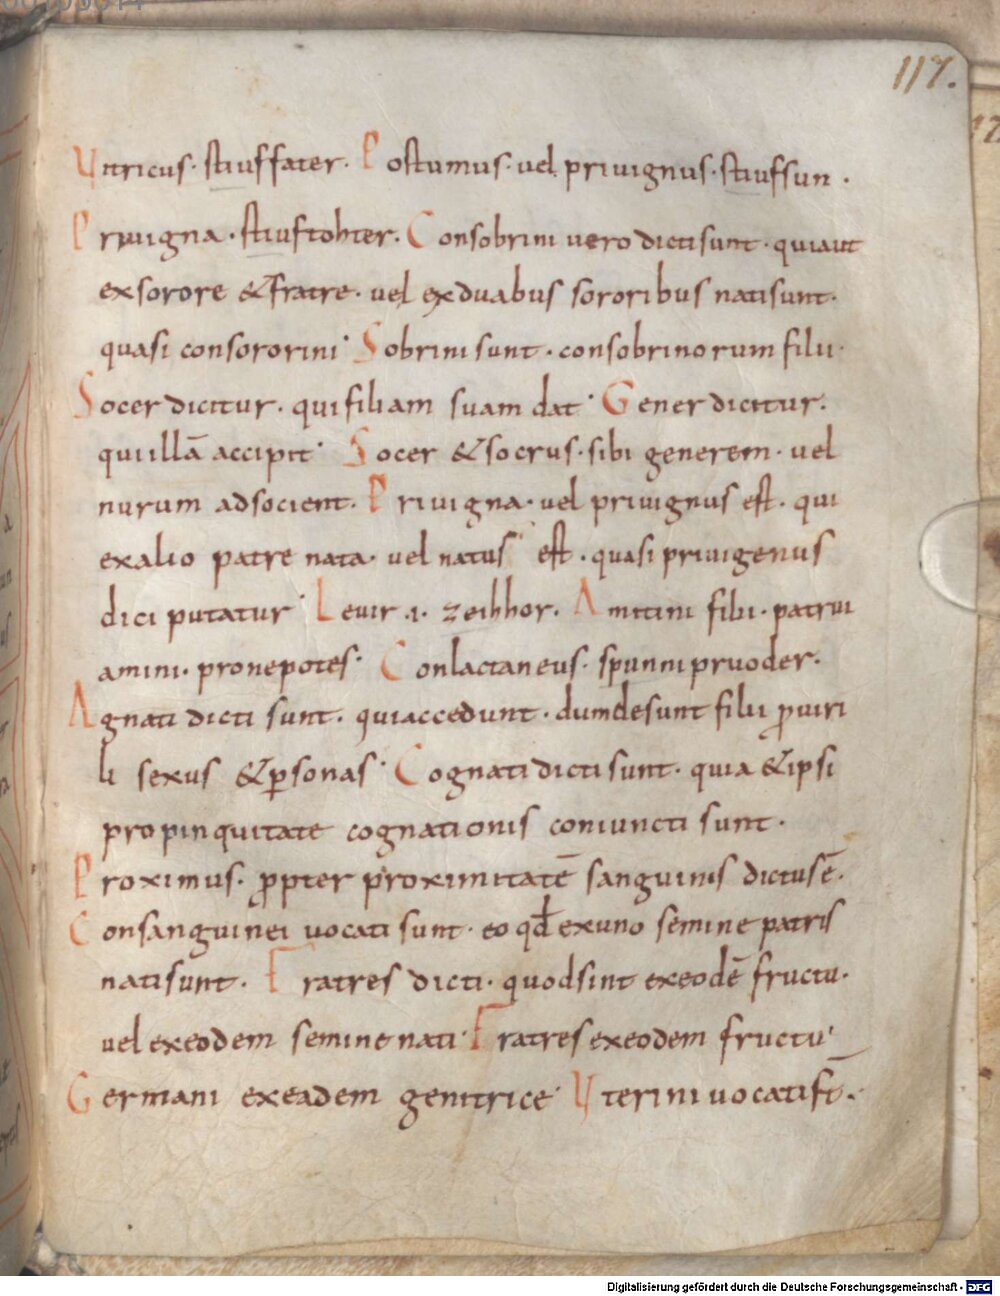 117.
Vitricus. stiuffater. Postumus. vel privignus. stiufsun.
Privigna. stiuftohter. Consobrini vero dicti sunt. quiaut
exsorore &fratre. vel exduabus sororibus natisunt.
quasi consororini. Sobrini sunt. consobrinorum filii.
Socer dicitur. quifiliam suam dat. Gener dicitur.
quiillā accipit. Socer &socrus. sibi generem. vel
nurum adsocient. Privigna. vel privignus est. qui
exalio patre nata. vel natus est. quasi privigenus
dici putatur. Levir .i. zeihhor. Amitini filii. patrui
amini. pronepotes. Conlactaneus. spunnipruoder.
Agnati dicti sunt. quiaccedunt. dumdesunt filii ꝓviri
li sexus &ꝑsonas. Cognati dicti sunt. quia &ipsi
propinquitate cognationis coniuncti sunt.
Proximus. ꝓpter proximitatē sanguinis dictus ē.
Consanguinei vocati sunt. eo qd̄ exuno semine patris
natisunt. Fratres dicti. quodsint exeodē fructu.
vel exeodem semine nati. Fratres exeodem fructu.
Germani exeadem genitrice. Uterini vocati s̄t.
Digitalisierung gefördert durch die Deutsche Forschungsgemeinschaft - DFG